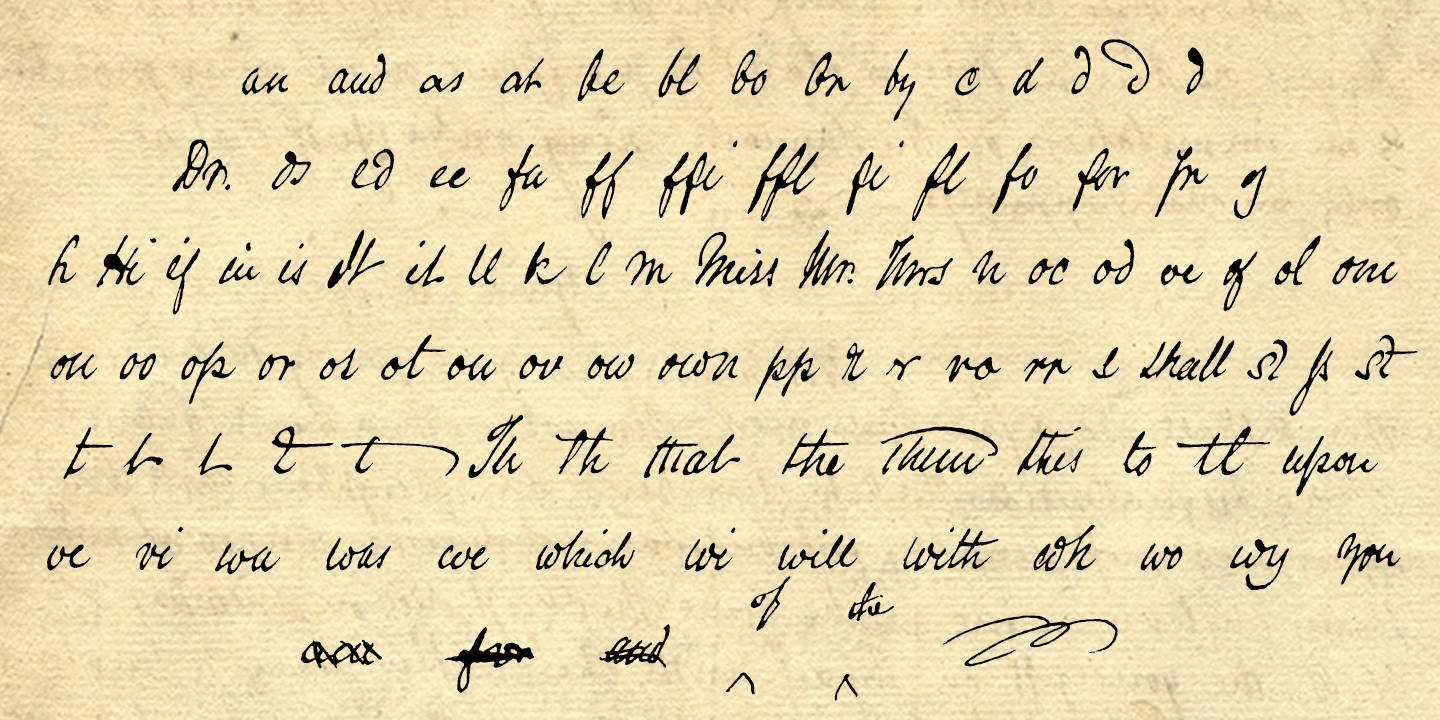 an and as at be bl bo br by c d d d d
Dr. ds ed ee fa ff ffi ffl fi fl fo for fr g
h Hi if in is It it ll k l m Miss Mr. Mrs n oc od oe of ol om
on oo op or os ot ou ov ow own pp r r ro rr s shall st ss st
t t t t t Th Th that the Them this to tt upon
ve vi wa was we which wi will with wh wo wy you
of the
and
^ ^